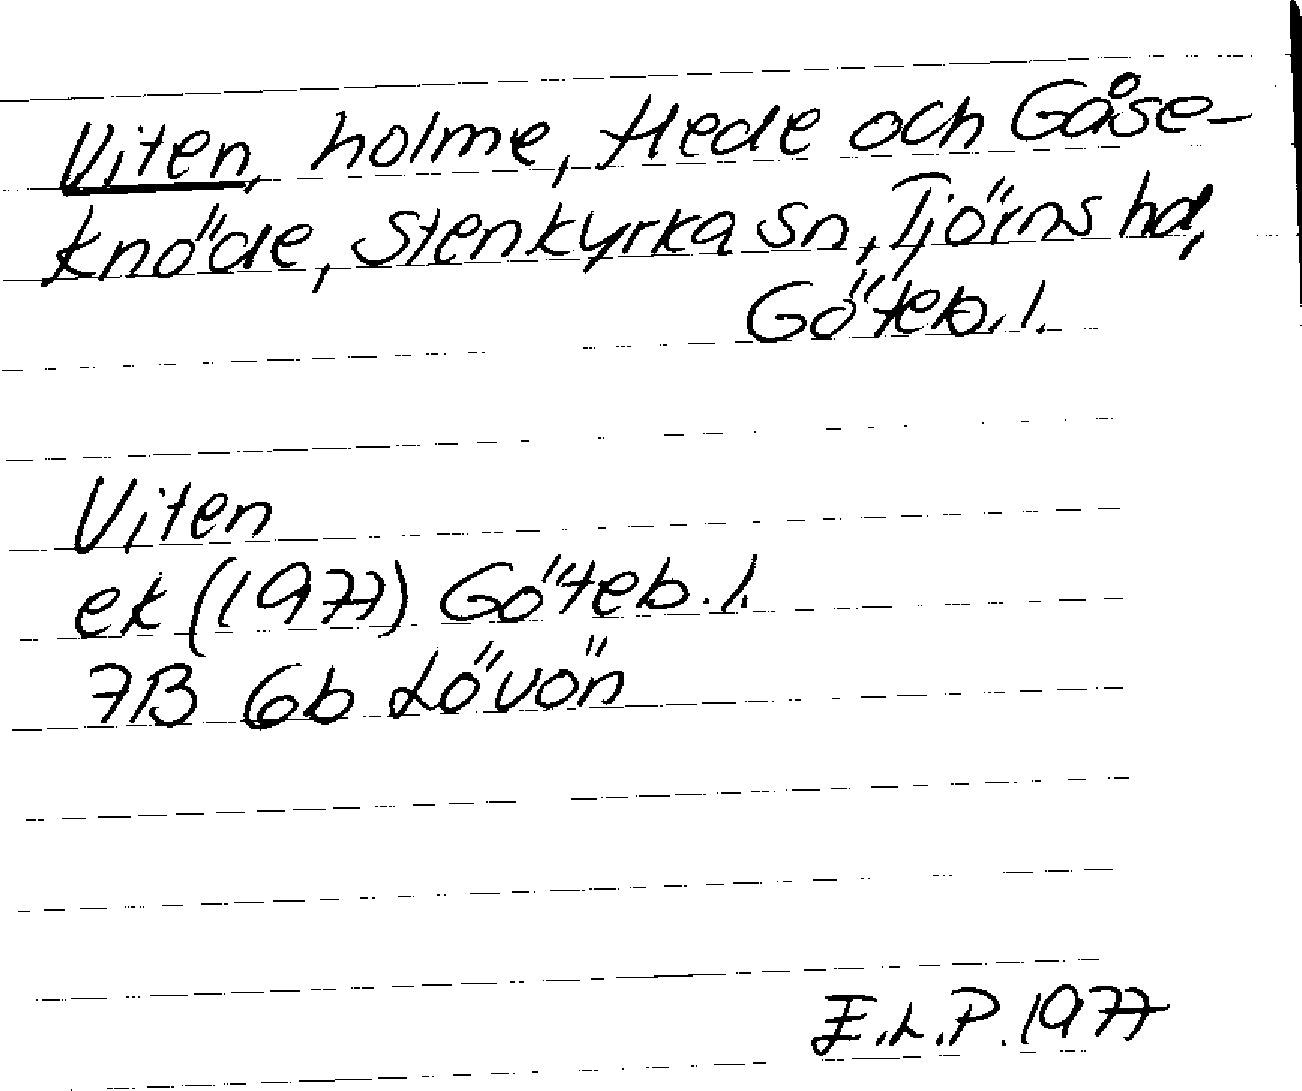 Viten, holme, Hede och Gåse-
knöde, Stenkyrka sn, Tjörns hd,
Göteb. l.
Viten
ek (1977) Göteb. l.
7B 6b Lövön
E.L.P. 1977